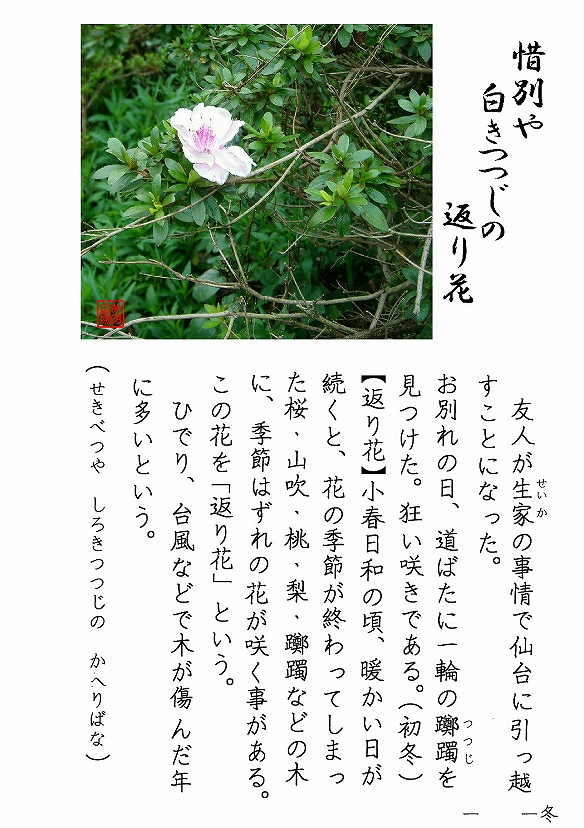 惜別や
白きつつじの
返り花
友人が生家の事情で仙台に引っ越
せいか
すことになった。
お別れの日、道ばたに一輪の躑躅を
つつじ
見つけた。狂い咲きである。(初冬)
【返り花】小春日和の頃、暖かい日が
続くと、花の季節が終わってしまっ
た桜・山吹・桃・梨・躑躅などの木
に、季節はずれの花が咲く事がある。
この花を「返り花」という。
ひでり、台風などで木が傷んだ年
に多いという。
(せきべつや しろきつつじの かへりばな)
一 一冬